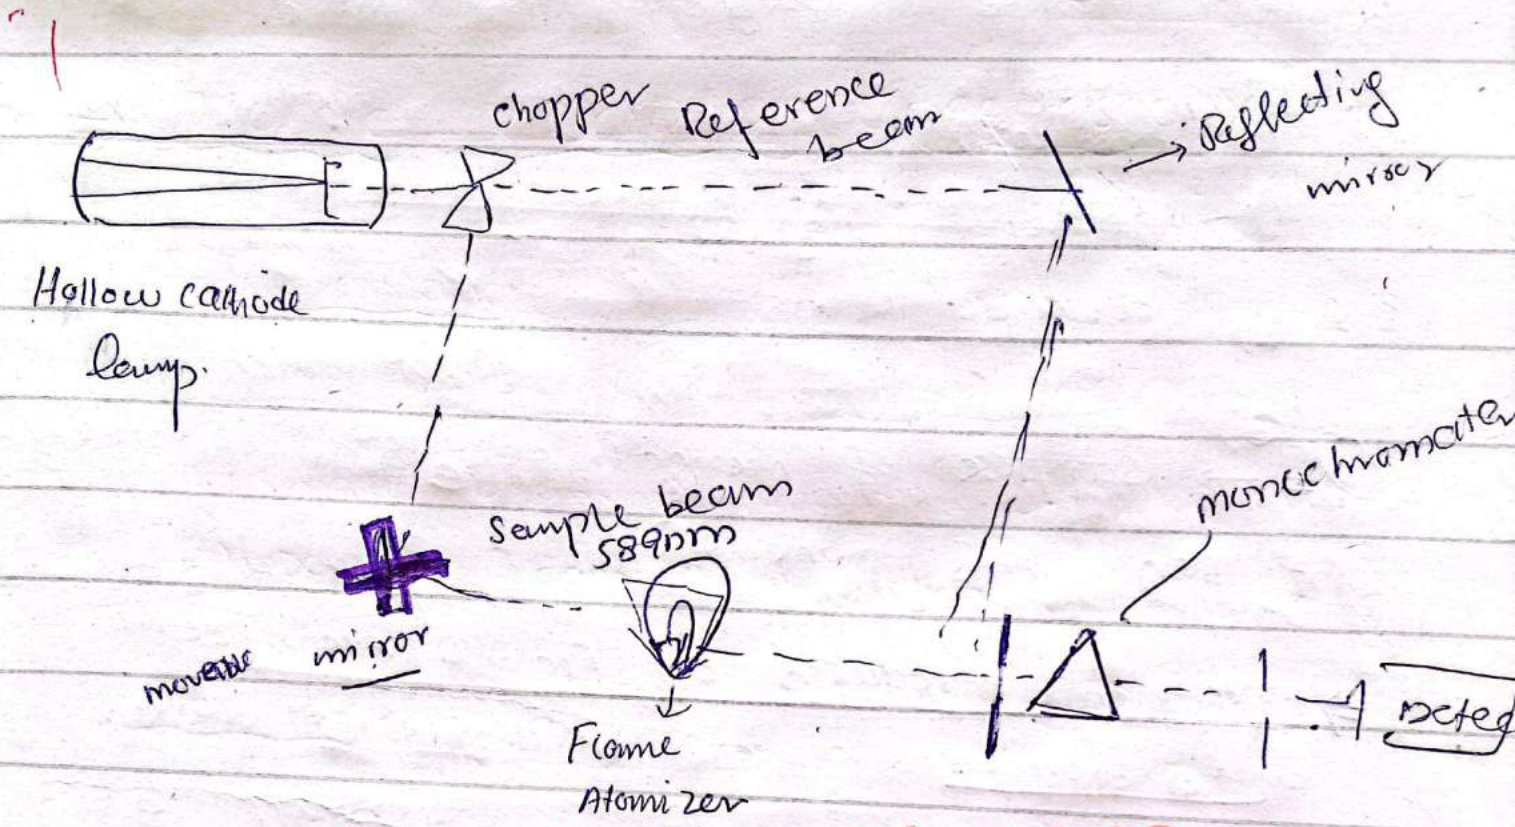 chopper
Reference
beam
Reflecting
mirror
Hollow cathode
lamp.
monochromater
Sample beam
589nm
movable mirror
Detec
Flame
Atomizer